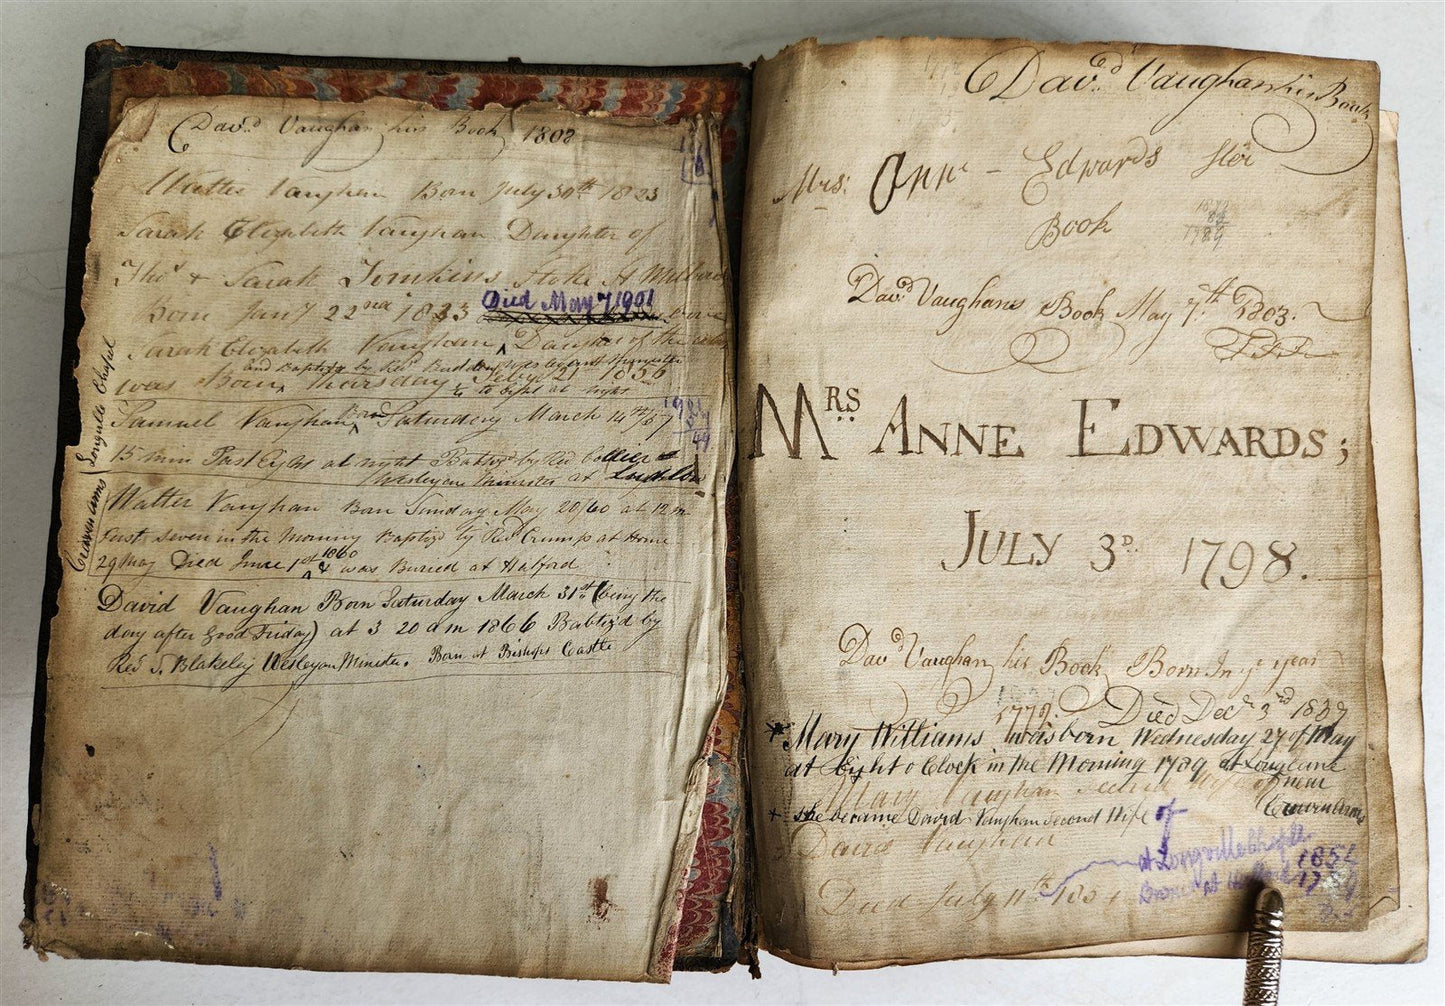 Dav.d Vaughan his Book 1808
Walter Vaughan Born July 30th 1823
Sarah Elizabeth Vaughan Daughter of
Thos & Sarah Tomkins Stoke St
Born Jany 22nd 1833 Died May 7 1901
Sarah Elizabeth Vaughan Daughter of the
and Baptized by Revd
was Born Thursday Feby 21 1856
to Eight at night
Samuel Vaughan Born Saturday March 14th/57
15 min Past Eight at night Baptizd by Rev Collier
Wesleyan Minister at Ludlow
Walter Vaughan Born Sunday May 20/60 at 12 m
Past seven in the Morning Baptizd by Revd Crump at Home
29 May Died June 1st 1860 & was Buried at Halford
David Vaughan Born Saturday March 31st (being the
day after Good Friday) at 3 20 a m 1866 Babtiz'd by
Revd J. Blakeley Wesleyan Minister. Born at Bishops Castle
Craven arms (Longville Chapel
1901
Dav.d Vaughan his Book
Mrs: Ann - Edwards Her
Book
1789
Dav.d Vaughans Book May 7.th 1803.
MRS ANNE EDWARDS;
JULY 3D. 1798.
Dav.d Vaughan his Book Born In ye year
1779. Died Decr 3rd 1837
Mary Williams was born Wednesday 27 of May
at Eight o Clock in the Morning 1789 at Longlane
Mary Vaughan Second Wife of near
+ she became David Vaughan second Wife of Craven Arms
David Vaughan
at Longville Chapel
Died July 11th 1851 1851